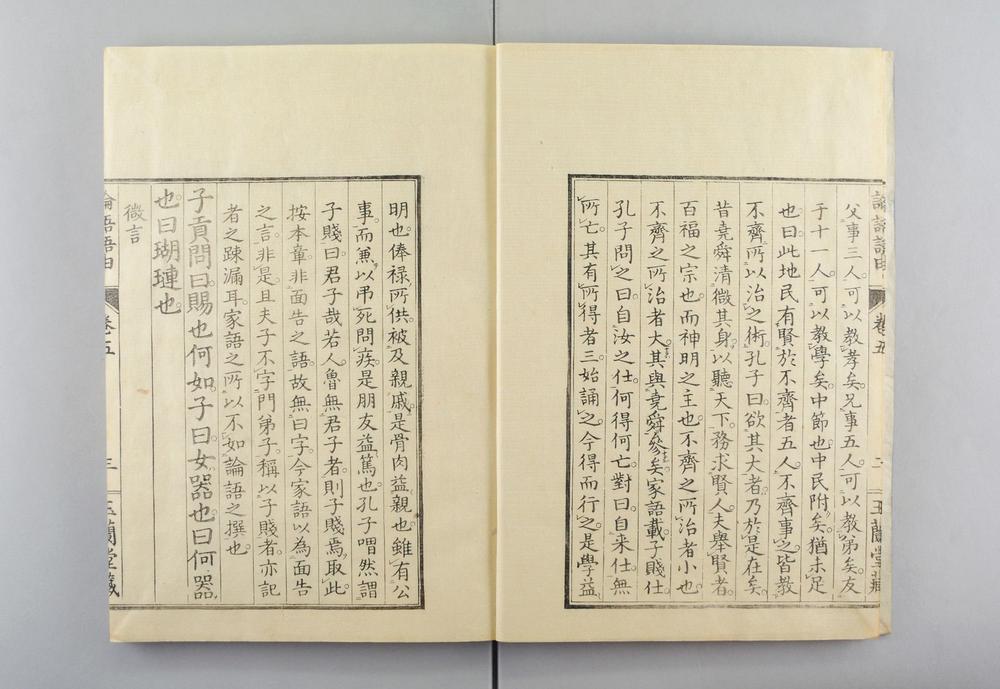 論語語由 卷五 二 玉蘭堂藏
父事三人。可以教孝矣。兄事五人。可以教弟矣。友
于十一人。可以教學矣。中節也。中民附矣。猶未足
也。曰此地民有賢於不齊者五人。不齊事之。皆教
不齊所以治之術。孔子曰。欲其大者。乃於是在矣。
昔堯舜清微其身。以聽天下。務求賢人。夫舉賢者。
百福之宗也。而神明之主也。不齊之所治者小也
不齊之所治者大。其與堯舜參矣。家語載子賤仕
孔子問之曰。自汝之仕。何得何亡。對曰。自来仕無
所亡。其有所得者三。始誦之。今得而行之。是學益
明也。俸禄所供。被及親戚。是骨肉益親也。雖有公
事。而兼以弔死問疾。是朋友益篤也。孔子喟然謂
子賤曰。君子哉若人。魯無君子者。則子賤焉取此
按本章非面告之語。故無曰字。今家語以為面告
之言。非是。且夫子不字門弟子。稱以子賤者。亦記
者之踈漏耳。家語之所以不如論語之撰也。
子貢問曰。賜也何如。子曰。女器也。曰何器
也。曰瑚璉也。
微言
論語語由 卷五 三 玉蘭堂藏